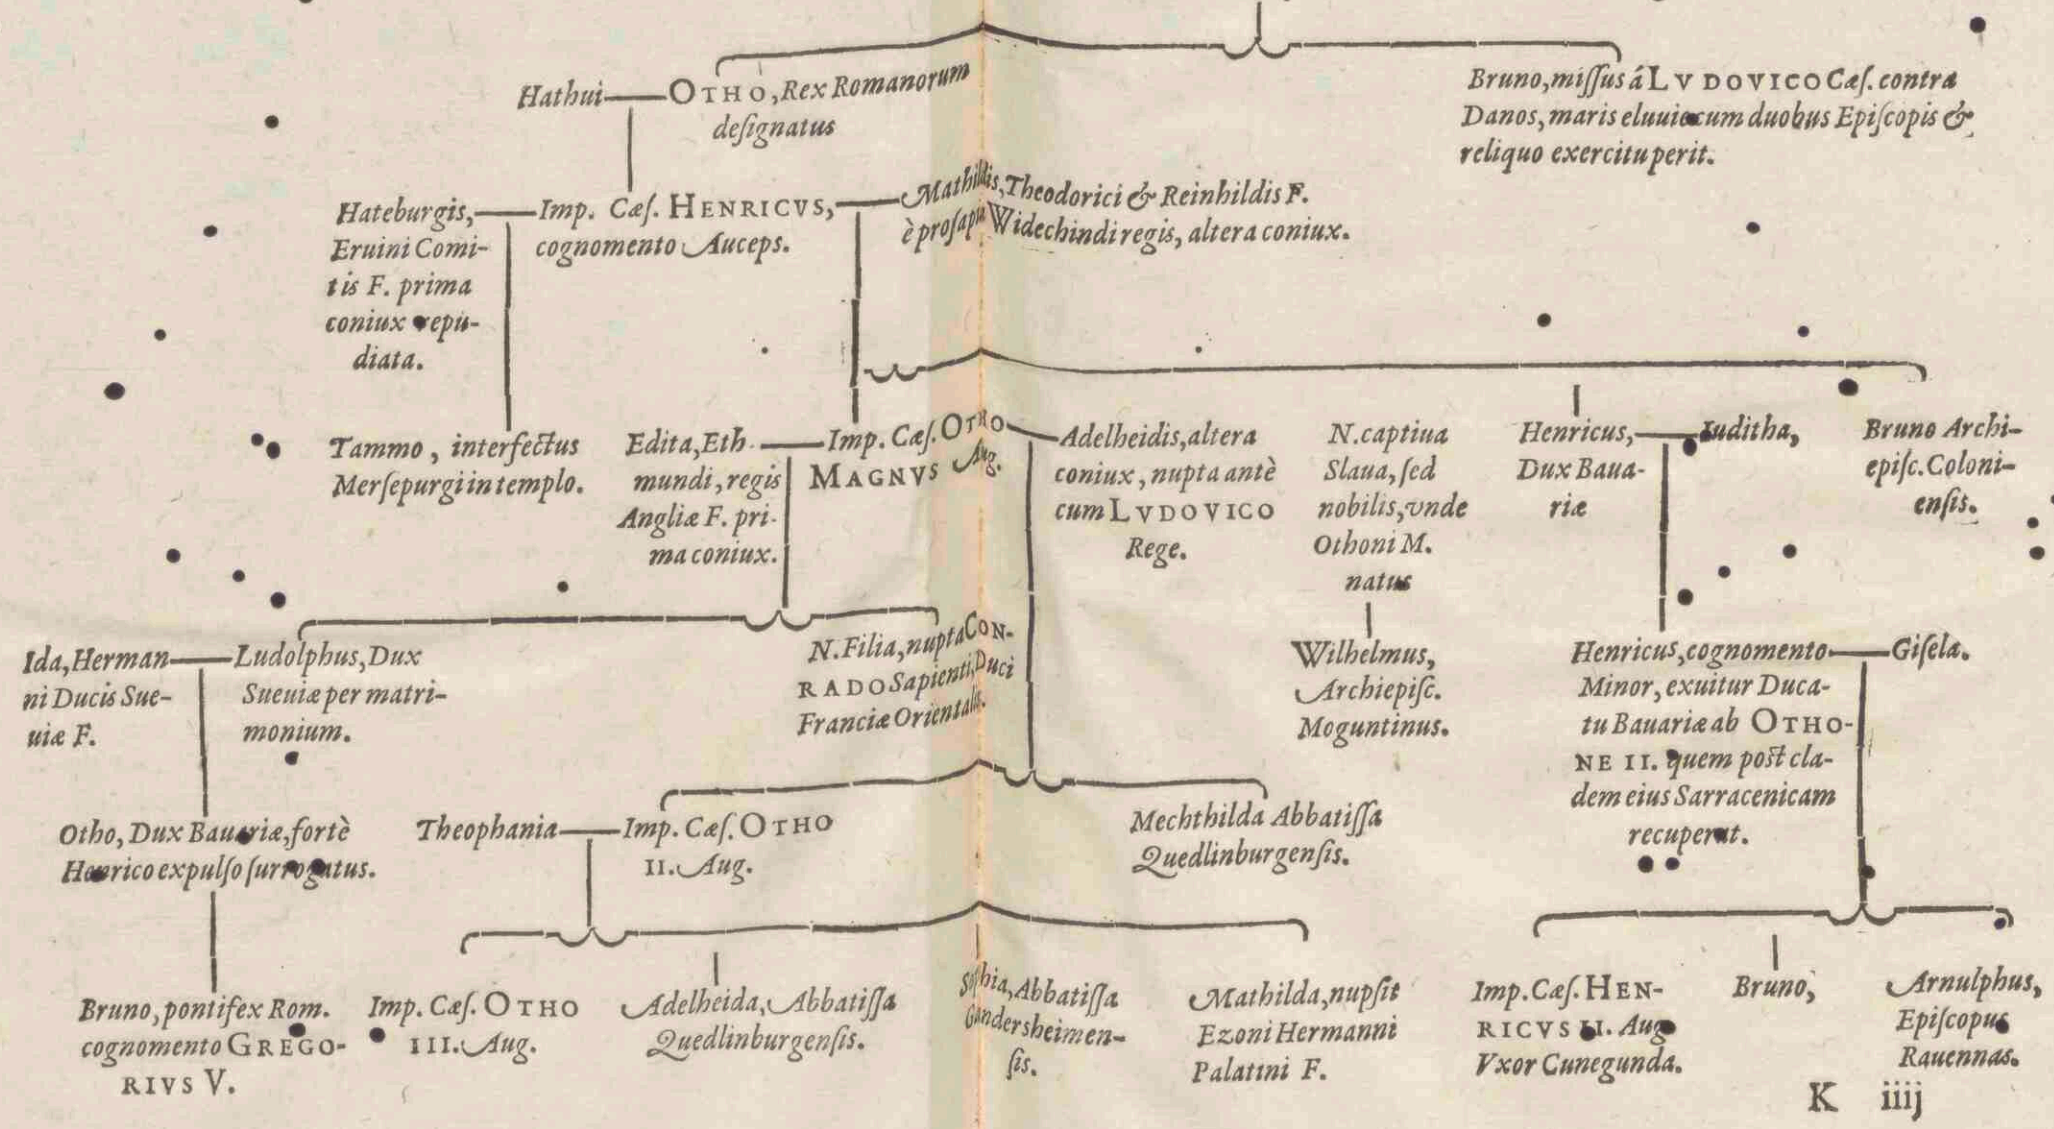 Hathui
OTHO, Rex Romanorum
deſignatus
Bruno, miſſus á LVDOVICO Cæſ. contra
Danos, maris eluuie cum duobus Epiſcopis &
reliquo exercitu perit.
Hateburgis,
Eruini Comi-
tis F. prima
coniux repu-
diata.
Imp. Cæſ. HENRICVS,
cognomento Auceps.
Mathildis, Theodorici & Reinhildis F.
è proſapia Widechindi regis, altera coniux.
Tammo, interfectus
Merſepurgi in templo.
Edita, Eth-
mundi, regis
Angliæ F. pri-
ma coniux.
Imp. Cæſ. OTHO
MAGNVS Aug.
Adelheidis, altera
coniux, nupta antè
cum LVDOVICO
Rege.
N. captiua
Slaua, ſed
nobilis, vnde
Othoni M.
natus
Henricus,
Dux Baua-
riæ
Iuditha,
Bruno Archi-
epiſc. Coloni-
enſis.
Ida, Herman
ni Ducis Sue-
uiæ F.
Ludolphus, Dux
Sueuiæ per matri-
monium.
N. Filia, nupta CON-
RADO Sapienti, Duci
Franciæ Orientalis.
Wilhelmus,
Archiepiſc.
Moguntinus.
Henricus, cognomento
Minor, exuitur Duca-
tu Bauariæ ab OTHO-
NE II. quem poſt cla-
dem eius Sarracenicam
recuperat.
Giſela.
Otho, Dux Bauariæ, fortè
Henrico expulſo ſurrogatus.
Theophania
Imp. Cæſ. OTHO
II. Aug.
Mechthilda Abbatiſſa
Quedlinburgenſis.
Bruno, pontifex Rom.
cognomento GREGO-
RIVS V.
Imp. Cæſ. OTHO
III. Aug.
Adelheida, Abbatiſſa
Quedlinburgenſis.
Sophia, Abbatiſſa
Gandersheimen-
ſis.
Mathilda, nupſit
Ezoni Hermanni
Palatini F.
Imp. Cæſ. HEN-
RICVS II. Aug
Vxor Cunegunda.
Bruno,
Arnulphus,
Epiſcopus
Rauennas.
K iiij